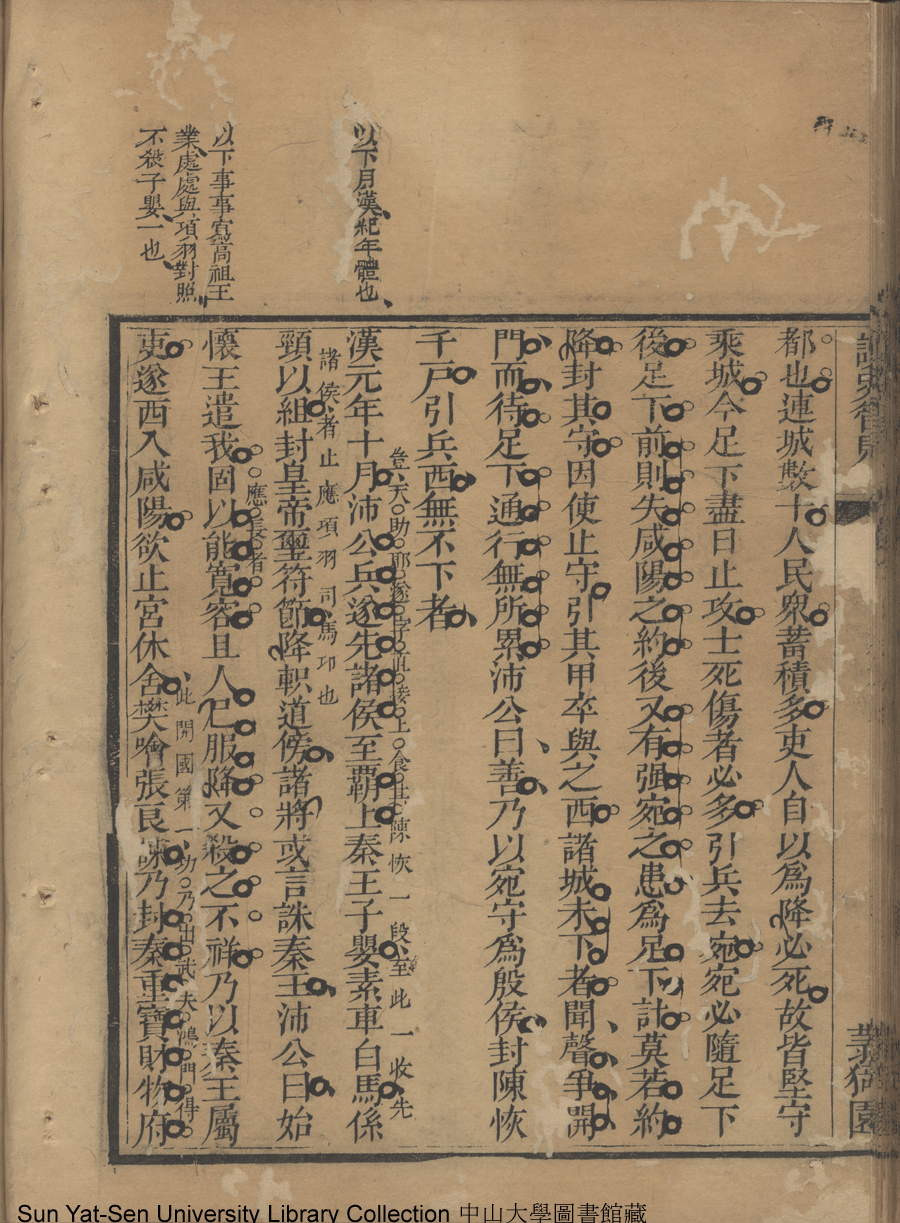 以下月漢紀年體也
以下事事寫高祖王
業處處與項羽對照
不殺子嬰一也
都也連城數十人民衆蓄積多吏人自以為降必死故皆堅守
乘城今足下盡日止攻士死傷者必多引兵去宛宛必隨足下
後足下前則失咸陽之約後又有强宛之患為足下計莫若約
降封其守因使止守引其甲卒與之西諸城未下者聞聲爭開
門而待足下通行無所累沛公曰善乃以宛守為殷侯封陳恢
千戶引兵西無不下者
豈天助耶遂字直接上食其陳恢一段至此一收先
漢元年十月沛公兵遂先諸侯至霸上秦王子嬰素車白馬係
諸侯者止應項羽司馬卭也
頸以組封皇帝璽符節降軹道傍諸將或言誅秦王沛公曰始
應長者
懷王遣我固以能寬容且人已服降又殺之不祥乃以秦王屬
此開國第一功乃出武夫鴻門得
吏遂西入咸陽欲止宮休舍樊噲張良諫乃封秦重寶財物府
園
Sun Yat-Sen University Library Collection 中山大學圖書館藏